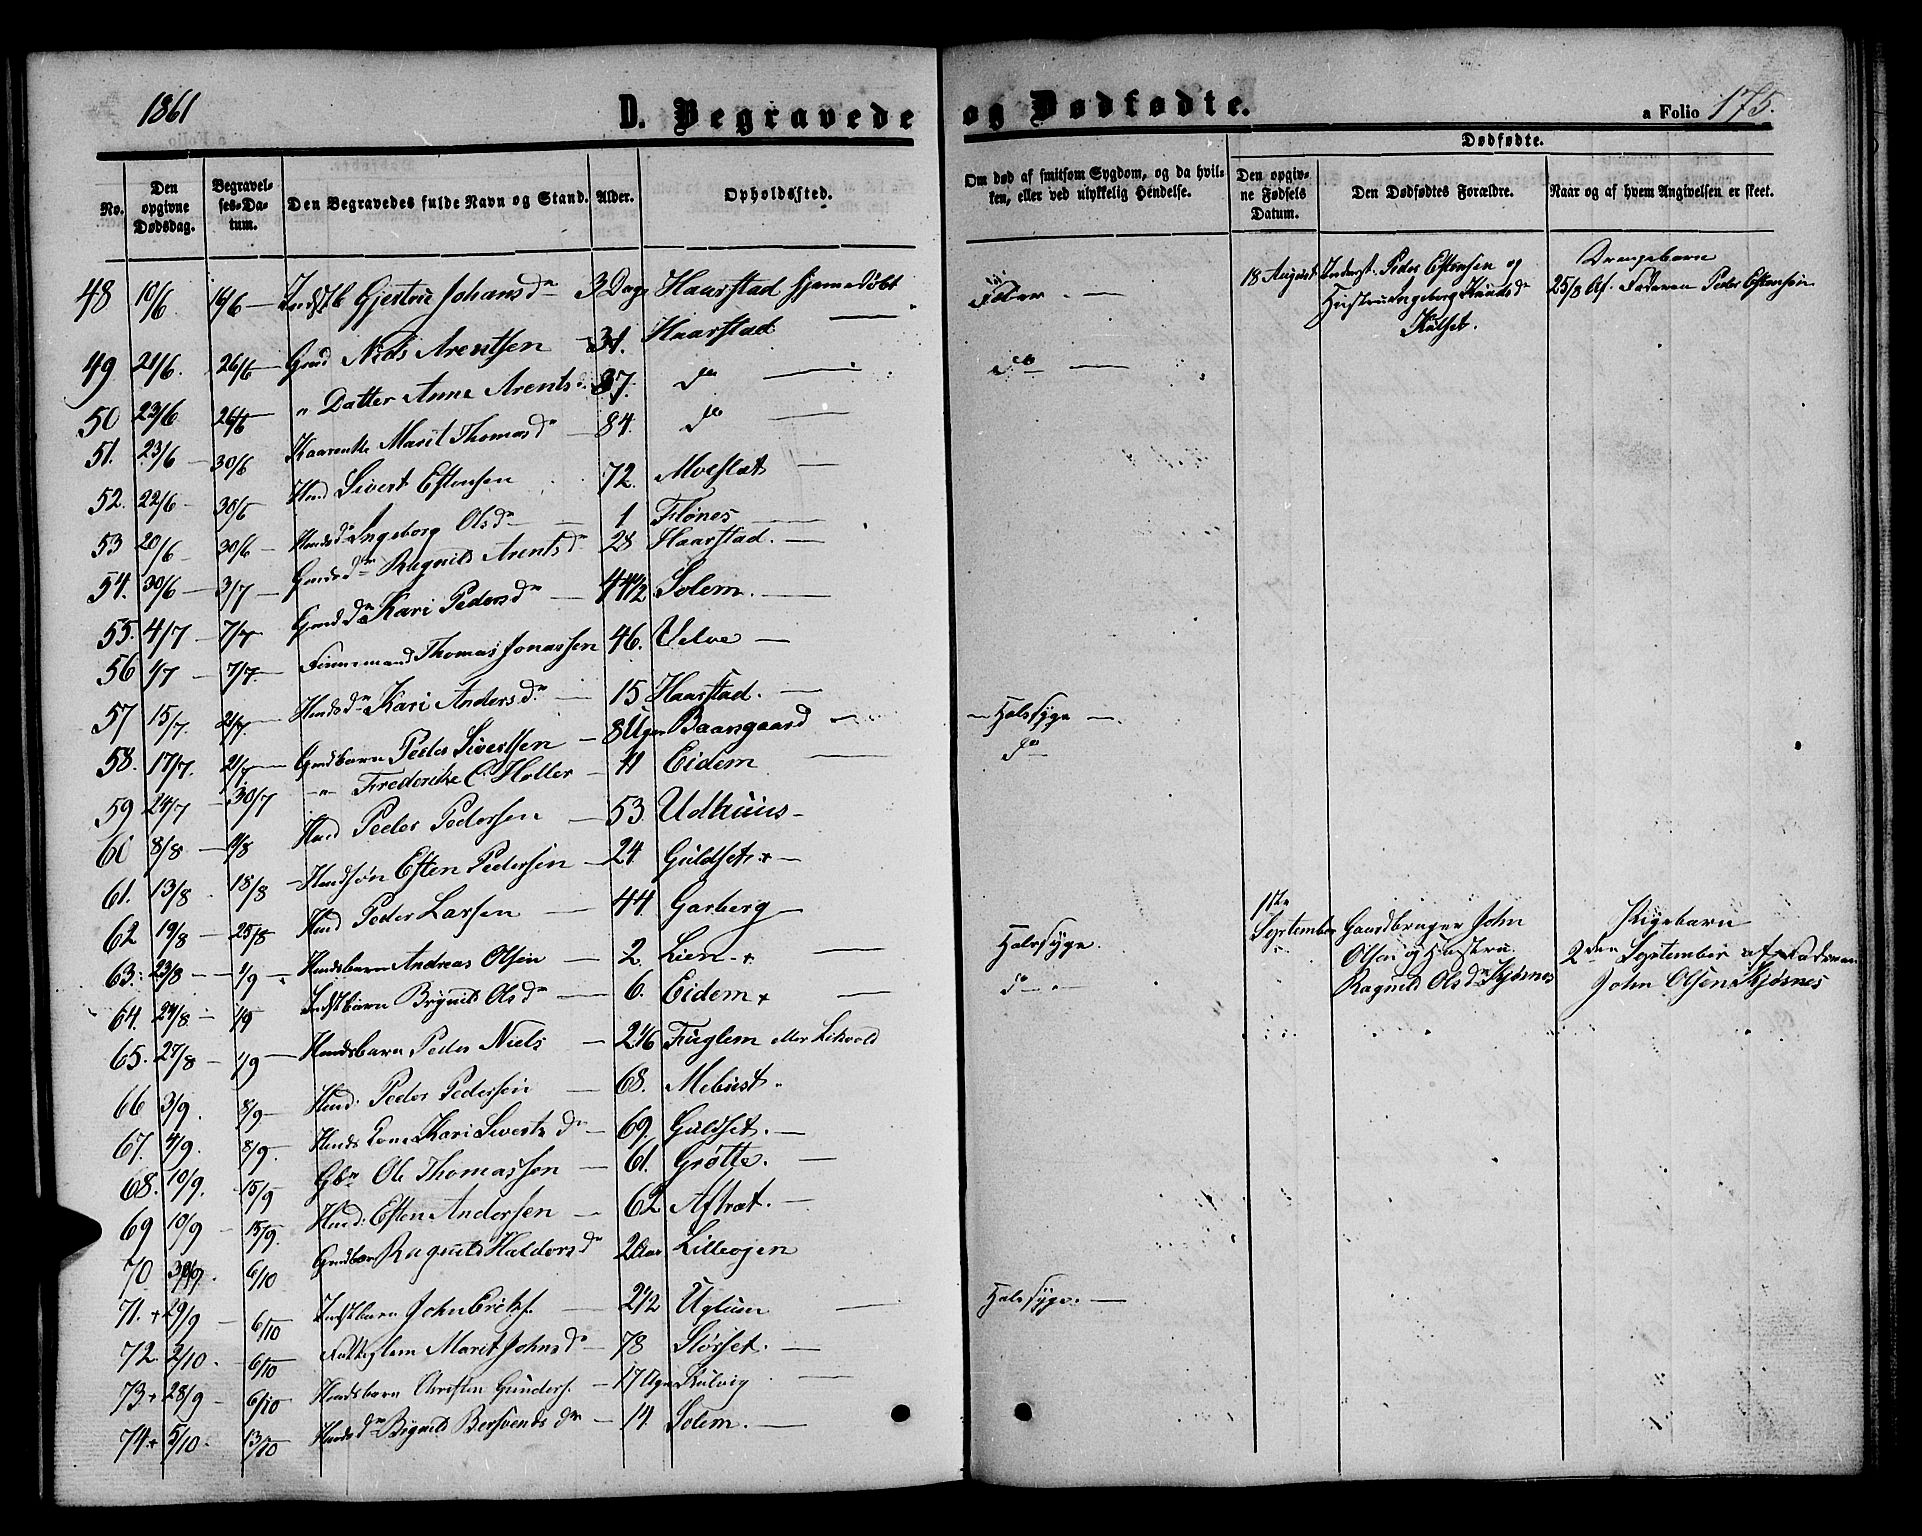 1861
D. Begravede og Dødfødte.
a Folio 175.
No.
Den opgivne Dødsdag.
Begravelses-Datum.
Den Begravedes fulde Navn og Stand.
Alder.
Opholdssted.
Om død af smitsom Sygdom, og da hvilken, eller ved ulykkelig Hendelse.
Dødfødte.
Den opgivne Fødsels Datum.
Den Dødfødtes Forældre.
Naar og af hvem Angivelsen er skeet.
48 10/6 16/6 Johans dr 3 Dage Haarstad hjemmedøbt
49 21/6. 26/6 Gmd Niels Arentsen 31. Haarstad Feber
50 23/6 26/6 " Datter Anne Arents 37. do do
51. 23/6 30/6 Marit Thomasdr 84. do
52. 22/6 30/6 Hmd Sivert Estensen 72.
53 20/6 30/6 Hmdsdr Ingeborg Olsdr 1 Flönes
54. 30/6 3/7 Gmdsdr Ragnild Arentsdr 28 Haarstad.
55. 4/7 7/7 Gmdsdr Kari Pedersdr 4 Solem.
56 1/7 7/7 Finnemand Thomas Jonassen 46. Velve
57 15/7. 21/7 Hmdsdr Kari Andersdr 15 Haarstad.
58. 17/7. 21/7 Gmdbarn Peder Sivertsen 8 Uger Baangaard Halssyge
59 24/7 30/7 " Frederikke C Holler 11 Eidem do
60 8/8 9/8 Hmd Peder Pedersen 53. Udhuus
61. 13/8 18/8 Hmdsøn Esten Pedersen 24 Guldset +
62 19/8 25/8 Hmd Peder Larsen 44. Garberg
63. 23/8 1/9 Hmdsbarn Andreas Olsen 2. Lien + Halssyge.
64. 24/8 1/9 Indstbarn Brynild Olsdr 6. Eidem + do
65. 27/8 1/9 Hmdsbarn Peder Niels 2 1/6 Fuglem eller Likvold
66 3/9. 8/9 Hmd. Peder Pedersen 68. Mebust.
67. 4/9. 8/9. Hmds Kone Kari Sivertsdr 69. Guldset.
68. 10/9. 15/9 Gbr Ole Thomassen 61. Grøtte.
69 10/9 15/9. Hmd. Esten Andersen 62 Aftret.
70 30/9. 6/10 Gmdbarn Ragnild Haldorsdr 2 Lillevjen
71. + 29/9 6/10 Indstbarn John Eriks. 2 1/2 Uglum Halssyge.
72. 2/10. 6/10 Fattiglem Marit Johnsdr 78 Slørset.
73 + 28/9 6/10 Hmdsbarn Christen Gunders. 17 Uger Kulvig
74. + 5/10. 13/10 Hmdsdr Brynild Bersvendsdr 14. Solem.
18 August
Inderst. Peder Estensen og
Hustru Ingeborg Knudsdr
Kulset.
Drengebarn
25/8 Af. Faderen Peder Estensen
1ste
September
Gaardbruger John
Olsen og Hustru
Ragnild Olsdr Kjøsnes
Pigebarn
2den September af Faderen
John Olsen Kjøsnes